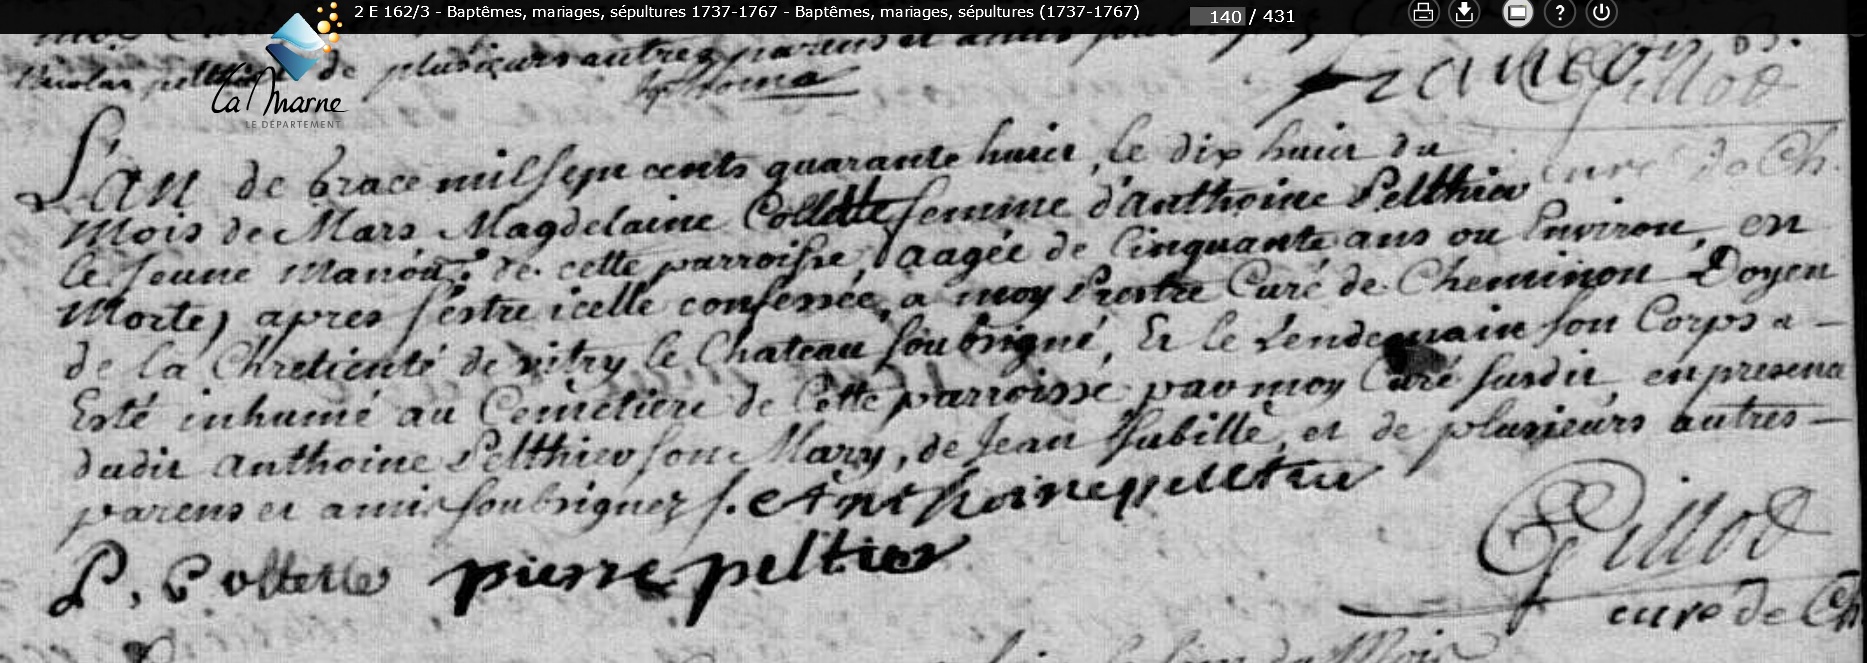 2 E 162/3 - Baptêmes, mariages, sépultures 1737-1767 - Baptêmes, mariages, sépultures (1737-1767) 140 / 431
de plusieurs autres parens et amis
La Marne
LE DÉPARTEMENT
Gillot
L'an de Grace mil sept cents quarante huict, le dix huict du
Mois de Mars Magdelaine Collette femme d'Anthoine Pelthier
le Jeune Manou. de cette parroisse, aagée de Cinquante ans ou Environ, en
Morte, apres s'estre icelle confessée, a moy Prestre Curé de Cheminon Doyen
de la Chretienté de vitry le Chateau soubsigné, Et le Lendemain son Corps a
Esté inhumé au Cemetiere de Cette parroisse par moy Curé susdit, en presence
dudit Anthoine Pelthier son Mary, de Jean Jubille, et de plusieurs autres
parens et amis soubsignez /. Anthoine peltier
P. Collette pierre peltier
Gillot
curé de Ch